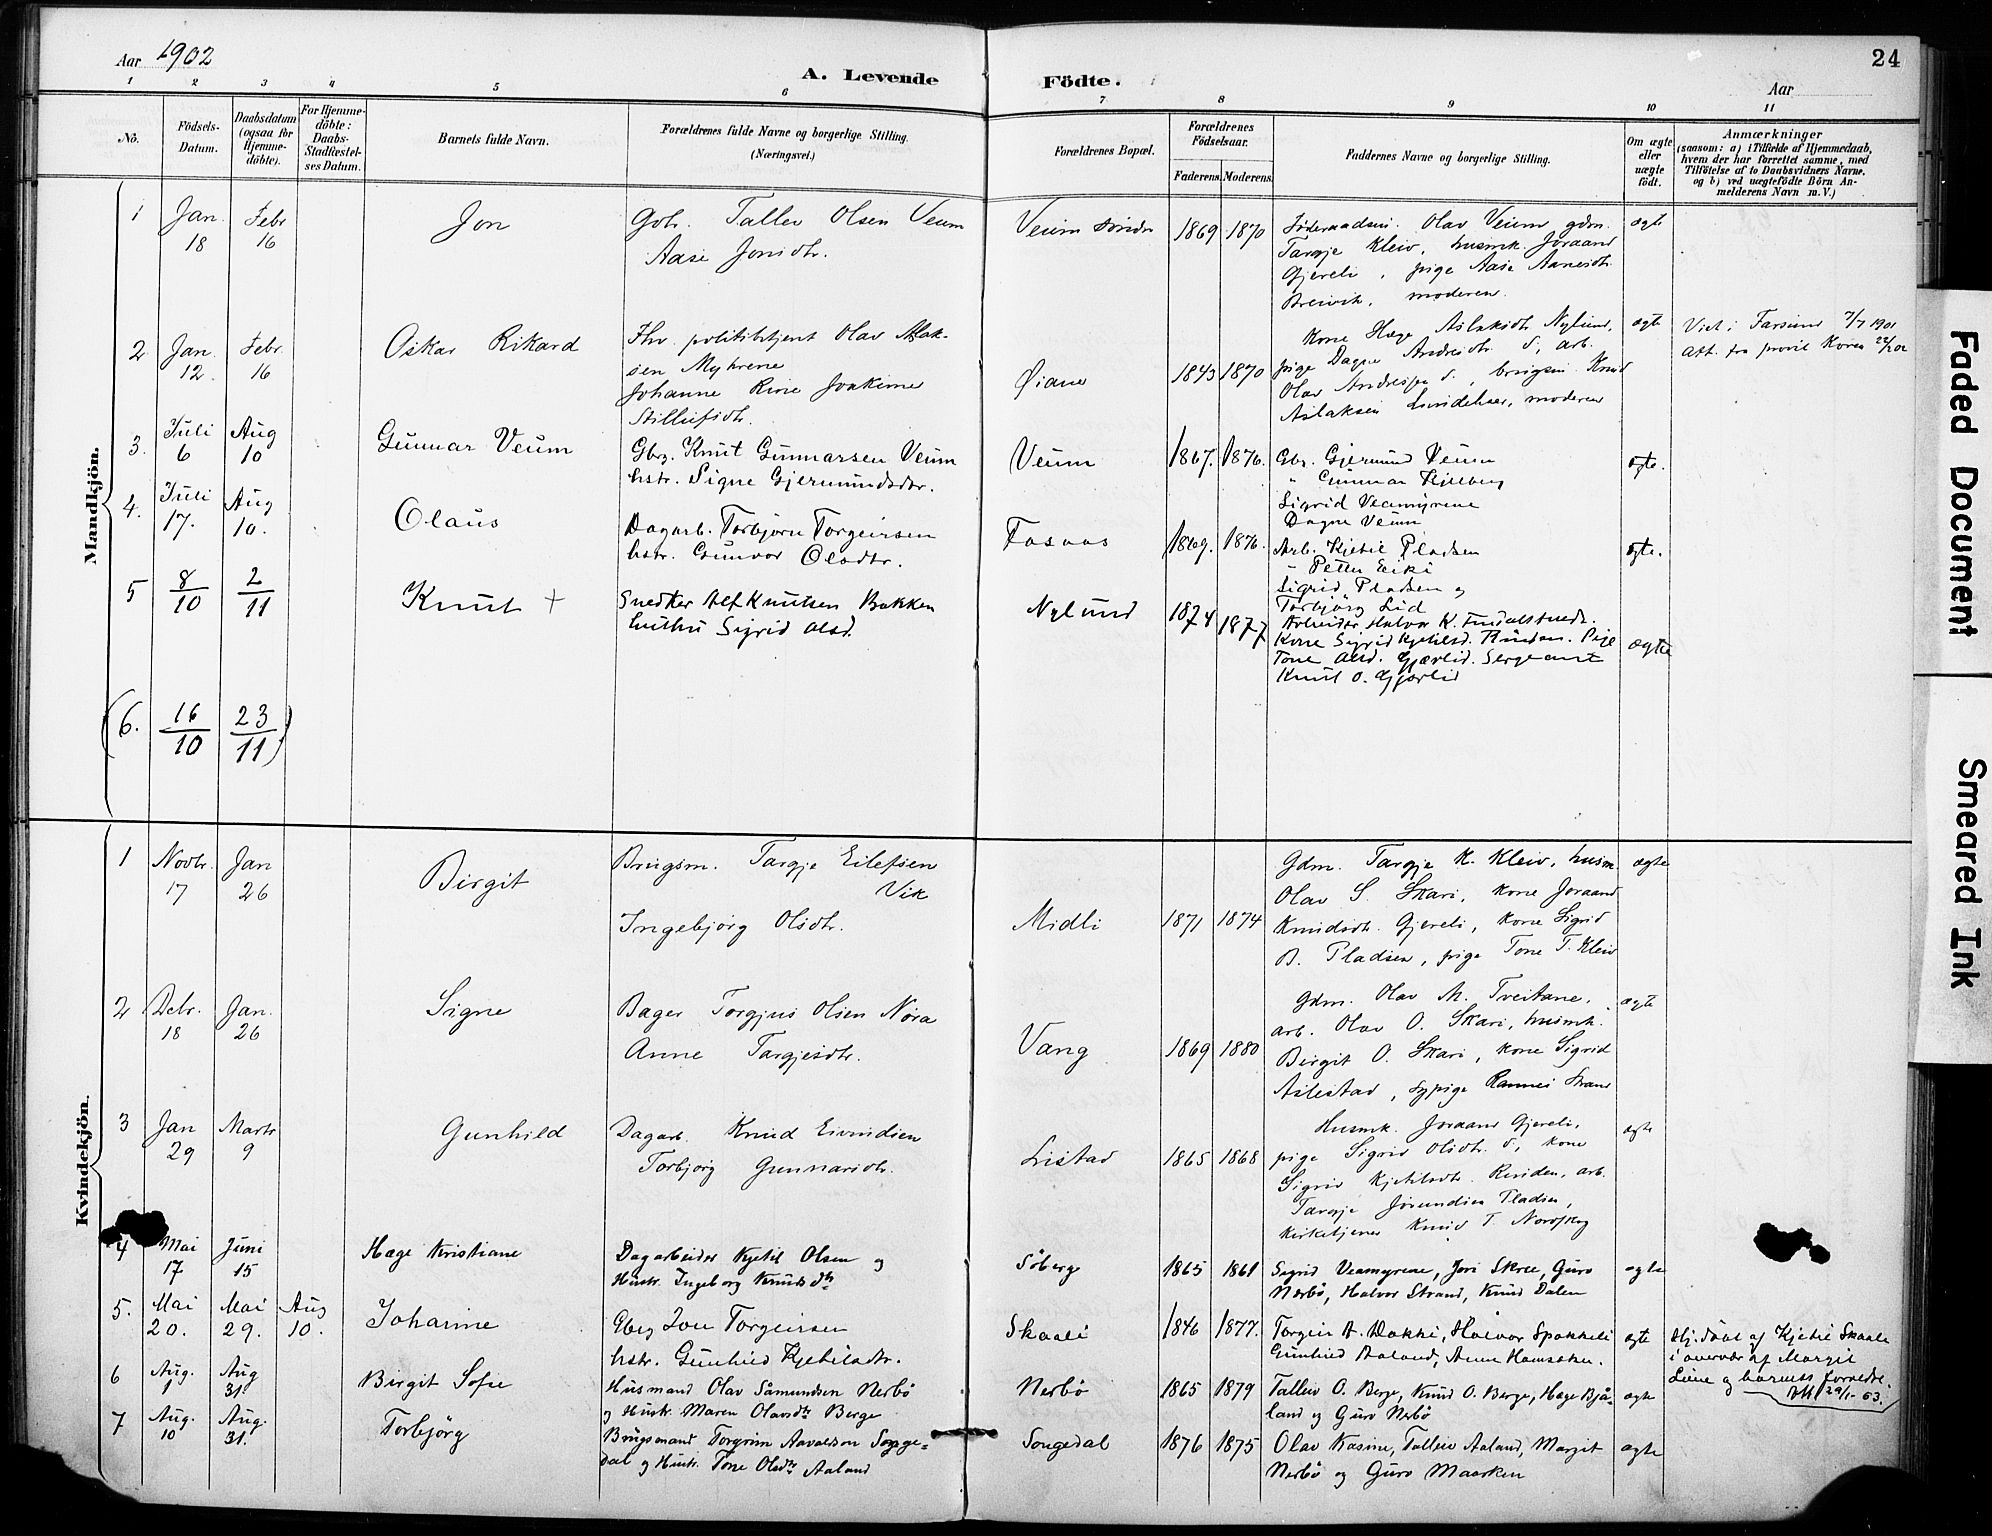 Aar 1902
A. Levende Födte.
24
Aar
1 2 3 4 5 6 7 8 9 10 11
No.
Födsels-Datum.
Daabsdatum (ogsaa for Hjemme-döbte).
For Hjemme-döbte: Daabs-Stadfæstel-ses Datum.
Barnets fulde Navn.
Forældrenes fulde Navne og borgerlige Stilling.
(Næringsvei.)
Forældrenes Bopæl.
Forældrenes Födselsaar.
Faderens Moderens
Faddernes Navne og borgerlige Stilling.
Om ægte eller uægte födt.
Anmærkninger
(saasom: a) i Tilfælde af Hjemmedaab,
hvem der har forrettet samme, med
Tilföielse af to Daabsvidners Navne,
og b) ved uægtefödte Börn An-
melderens Navn m. V.)
Mandkjön.
1 Jan. 18 Febr 16 Jon
Gbr. Tallev Olsen Veum
Aase Jonsdtr.
Veum 1869 1870
Olav Veum gdm.
Targje Kleiv, husmk. Joraand
Gjereli, pige Aase
Breivik, moderen.
ægte
2 Jan. 12. Febr. 16 Oskar Rikard
Fhv. politibetjent Olav Aslak-
sen Myhrene
Johanne
Øiane 1843 1870
Kone Hæge Aslaksdtr Nylund,
pige Dagne d., arb.
Olav Knud
Aslaksen moderen
ægte
Viet i Farsund 7/7 1901
Att. fra
3. Juli 6 Aug 10 Gunnar Veum
Gbrg. Knut Gunnarsen Veum
hstr. Signe Gjermundsdtr.
Veum 1867. 1876.
Gbr. Gjermund Veum
" Gunnar
Sigrid Veamyrene
Dagne Veum
ægte.
4. Juli 17. Aug 10. Olaus
Dagarb. Torbjørn Torgeirsen
hstr. Gunvor Olsdtr.
Fosaas 1869. 1876.
Arb. Kjetil Pladsen
" Petter Eiki
Sigrid Pladsen og
Torbjörg Lid
ægte.
5 8/10 2/11 Knut +
Snedker Alf Knutsen Bakken
Sigrid Olsd.
Nylund 1874 1877
Arbeider Halvor K.
Kone Sigrid Kjetilsd. Pige
Tone Olsd. Gjærlid. Sergeant
Knut O. Gjærlid
ægte
(6. 16/10 23/11)
Kvindekjön.
1 Novbr. 17 Jan 26 Birgit
Brugsm. Targje Eilefsen
Vik
Ingebjörg Olsdtr.
Midli 1871 1874
Gdm. Targje K. Kleiv, husm.
Olav S. Skari, kone Joraand
Knudsdtr. Gjereli, kone Sigrid
B. Pladsen, pige Tone T. Kleiv
ægte
2 Debr. 18 Jan. 26 Signe
Bager Torgjus Olsen Nora
Anne Targjesdtr.
Vang 1869 1880
Gdm. Olav M. Tveitane,
arb. Olav O. Skari, husmk.
Birgit O. Skari, kone Sigrid
Aslestad, sypige
ægte
3 Jan 29 Marts 9 Gunhild
Dagarb. Knud Eivindsen
Torbjörg Gunnarsdtr.
Listad 1865 1868
Husmk. Joraand Gjereli,
pige Sigrid Olsdtr. d., kone
Sigrid Kjetilsdtr. arb.
Targje Jörundsen Pladsen,
Kirketjener Knud T.
ægte
4 Mai 17 Juni 15 Hæge Kristiane
Dagarbeider Kjetil Olsen og
Hustr. Ingeborg Knudsdtr
Söberge 1865 1861
Sigrid Veamyrene, Jori Skree, Guro
Nerbö, Halvor Strand, Knud Dalen
ægte
5. Mai 20. Mai 29. Aug 10. Johanne
Gbrg Jon Torgeirsen
hstr. Gunhild Kjetilsdtr.
Skaali 1846 1877.
Torgeir A. Dokki, Halvor Spokkeli
Gunhild Aaland, Anne
ægte
Hj.döbt af Kjetil Skaali
i overvær af Margit
Liene og barnets forældre.
6 Aug. 1 Aug 31. Birgit Sofie
Husmand Olav Såmundsen Nerbö
og Hustr. Maren Olavsdtr Berge
Nerbö 1865 1879
Talleiv O. Berge, Knud O. Berge, Hæge Bjå-
land og Guro Nerbö
ægte
7 Aug. 10 Aug. 31. Torbjörg
Brugsmand Torgrim Aavaldson Songe-
dal og Hustr. Tone Olsdtr Aaland
Songedal 1876 1875
Olav Kasine, Talleiv Aaland, Margit
Nerbö og Guro Maarken
ægte
Faded Document
Smeared Ink